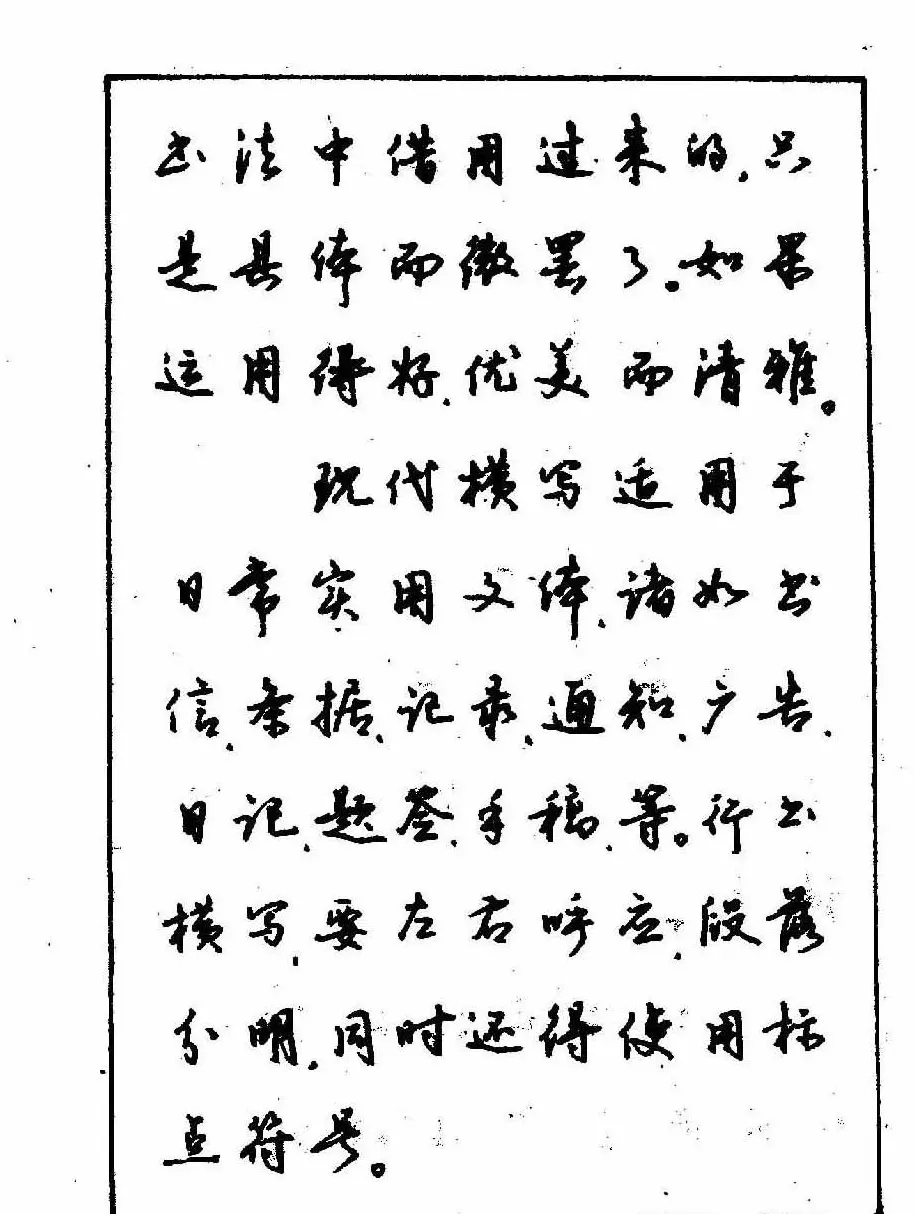 书法中借用过来的,只
是具体而微罢了。如果
运用得好,优美而清雅。
现代横写适用于
日常实用文体,诸如书
信、条据、记录、通知、广告、
日记、题签、手稿、等。行书
横写,要左右呼应,段落
分明,同时还得使用标
点符号。